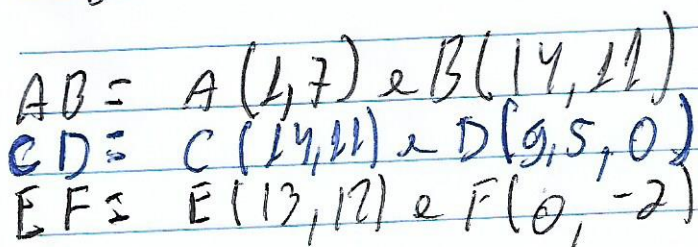 AB = A (1,7) e B(14,11)
CD = C (14,11) e D(9,5,0)
EF = E (13,12) e F(0,-2)